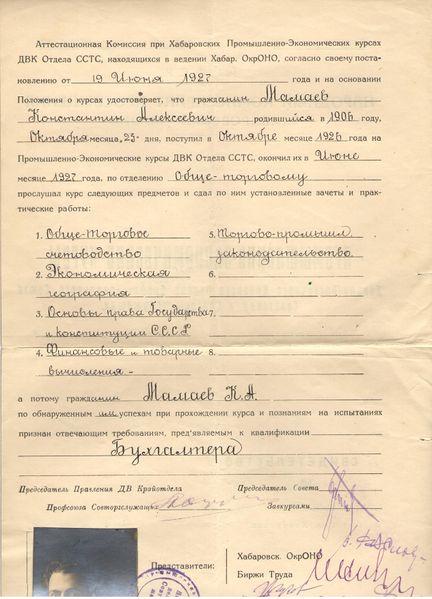 Аттестационная Комиссия при Хабаровских Промышленно-Экономических курсах
ДВК Отдела ССТС, находящихся в ведении Хабар. ОкрОНО, согласно своему поста-
новлению от 19 Июня 1927 года и на основании
Положения о курсах удостоверяет, что гражданин Мамаев
Константин Алексеевич родившийся в 1906 году,
Октября месяца, 23- дня, поступил в Октябре месяце 1926 года на
Промышленно-Экономические курсы ДВК Отдела ССТС, окончил их в Июне
месяце 1927 года, по отделению Обще-торговому
прослушал курс следующих предметов и сдал по ним установленные зачеты и прак-
тические работы:
1. Обще-Торговое 5. Торгово-промышл.
счетоводство законодательство
2. Экономическая 6.
география
3. Основы права Государства 7.
и конституции СССР
4. Финансовые и товарные 8.
вычисления -
а потому гражданин Мамаев К.А.
по обнаруженным им успехам при прохождении курса и познаниям на испытаниях
признан отвечающим требованиям, пред'являемым к квалификации
Бухгалтера
Председатель Правления ДВ Крайотдела Председатель Совета
Профсоюза Совторгслужащих Завкурсами
Представители: Хабаровск. ОкрОНО
Биржи Труда